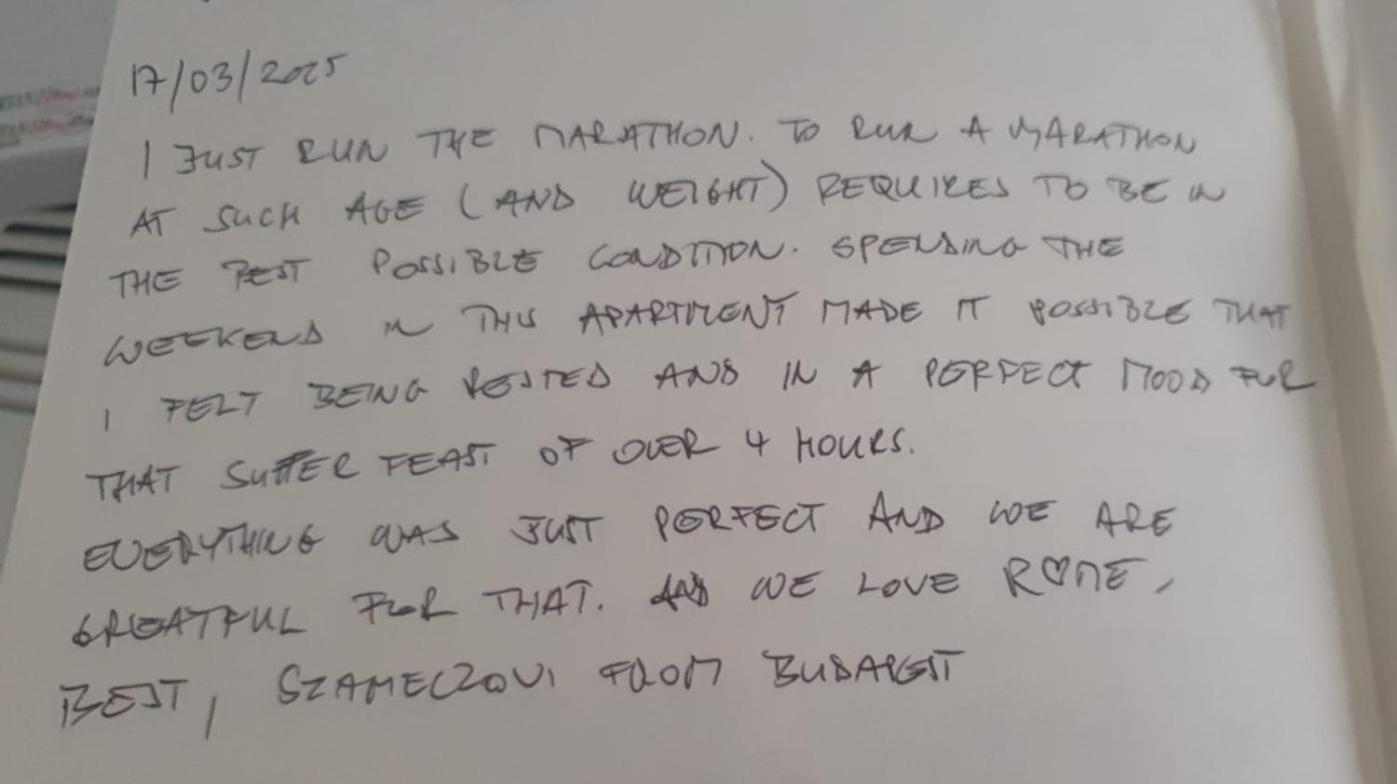 17/03/2025
I JUST RUN THE MARATHON. TO RUN A MARATHON
AT SUCH AGE (AND WEIGHT) REQUIRES TO BE IN
THE BEST POSSIBLE CONDITION. SPENDING THE
WEEKEND IN THIS APARTMENT MADE IT POSSIBLE THAT
I FELT BEING RESTED AND IN A PERFECT MOOD FOR
THAT SUFFER FEAST OF OVER 4 HOURS.
EVERYTHING WAS JUST PERFECT AND WE ARE
GREATFUL FOR THAT. AND WE LOVE R♡ME,
BEST, FROM BUDAPEST